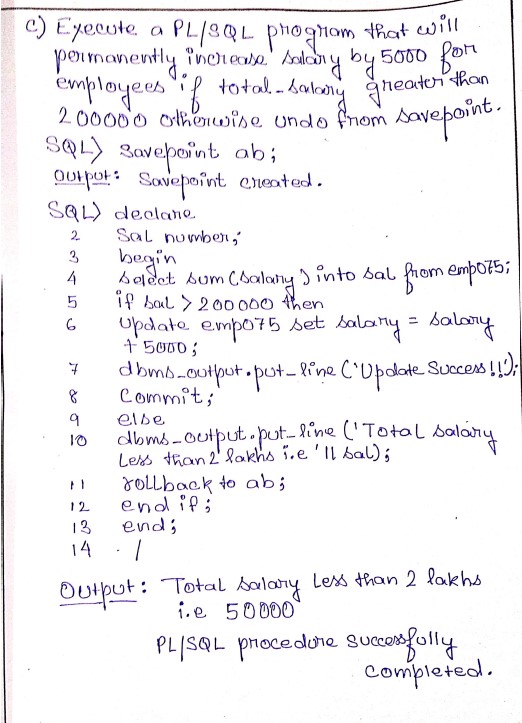 c) Execute a PL/SQL program that will
permanently increase salary by 5000 for
employees if total-salary greater than
200000 otherwise undo from savepoint.
SQL> savepoint ab;
Output: Savepoint created.
SQL> declare
2 Sal number;
3 begin
4 select sum(salary) into sal from emp075;
5 if sal > 200000 then
6 Update emp075 set salary = salary
+ 5000;
7 dbms_output.put_line('Update Success!!');
8 Commit;
9 else
10 dbms_output.put_line('Total salary
Less than 2 lakhs i.e '|| sal);
11 rollback to ab;
12 end if;
13 end;
14 . /
Output: Total Salary Less than 2 lakhs
i.e 50000
PL/SQL procedure successfully
completed.